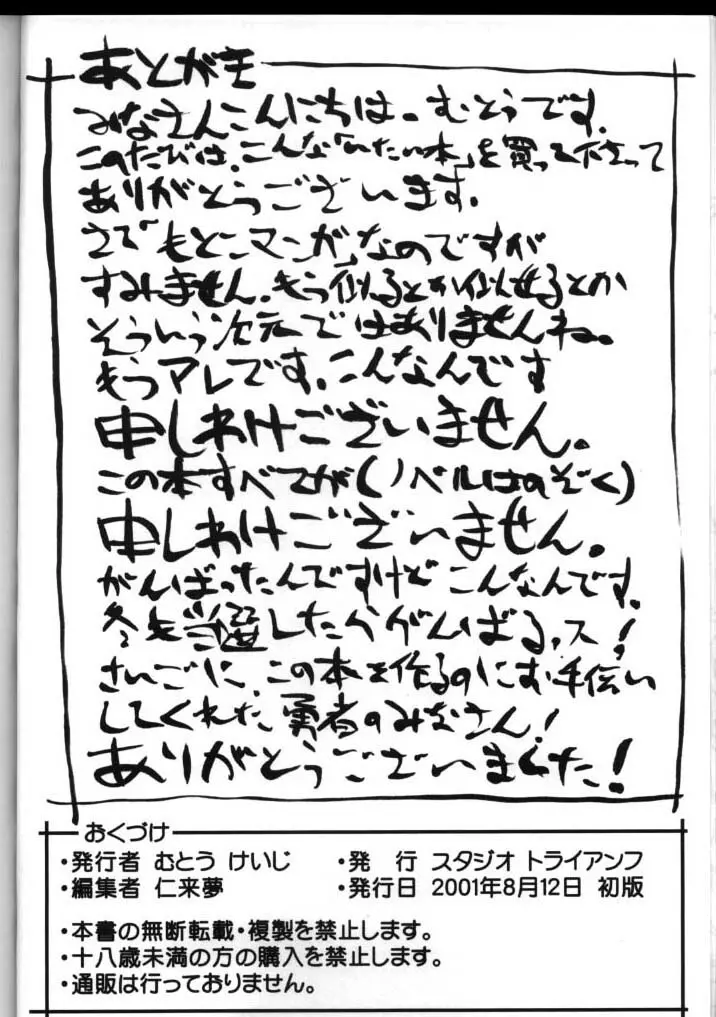 あとがき
みなさんこんにちは。むとうです。
このたびは、こんな「いたい本」を買って下さって
ありがとうございます。
さて「もとこマンガ」なのですが
すみません。もう似るとか似せるとか
そういう次元ではありませんね。
もうアレです。こんなんです
申しわけございません。
この本すべてが(ノベルはのぞく)
申しわけございません。
がんばったんですけど こんなんです。
冬も当選したらがんばるっス!
さいごに、この本を作るのにお手伝い
してくれた勇者のみなさん!
ありがとうございました!
おくづけ
・発行者 むとう けいじ ・発 行 スタジオ トライアンフ
・編集者 仁来夢 ・発行日 2001年8月12日 初版
・本書の無断転載・複製を禁止します。
・十八歳未満の方の購入を禁止します。
・通販は行っておりません。